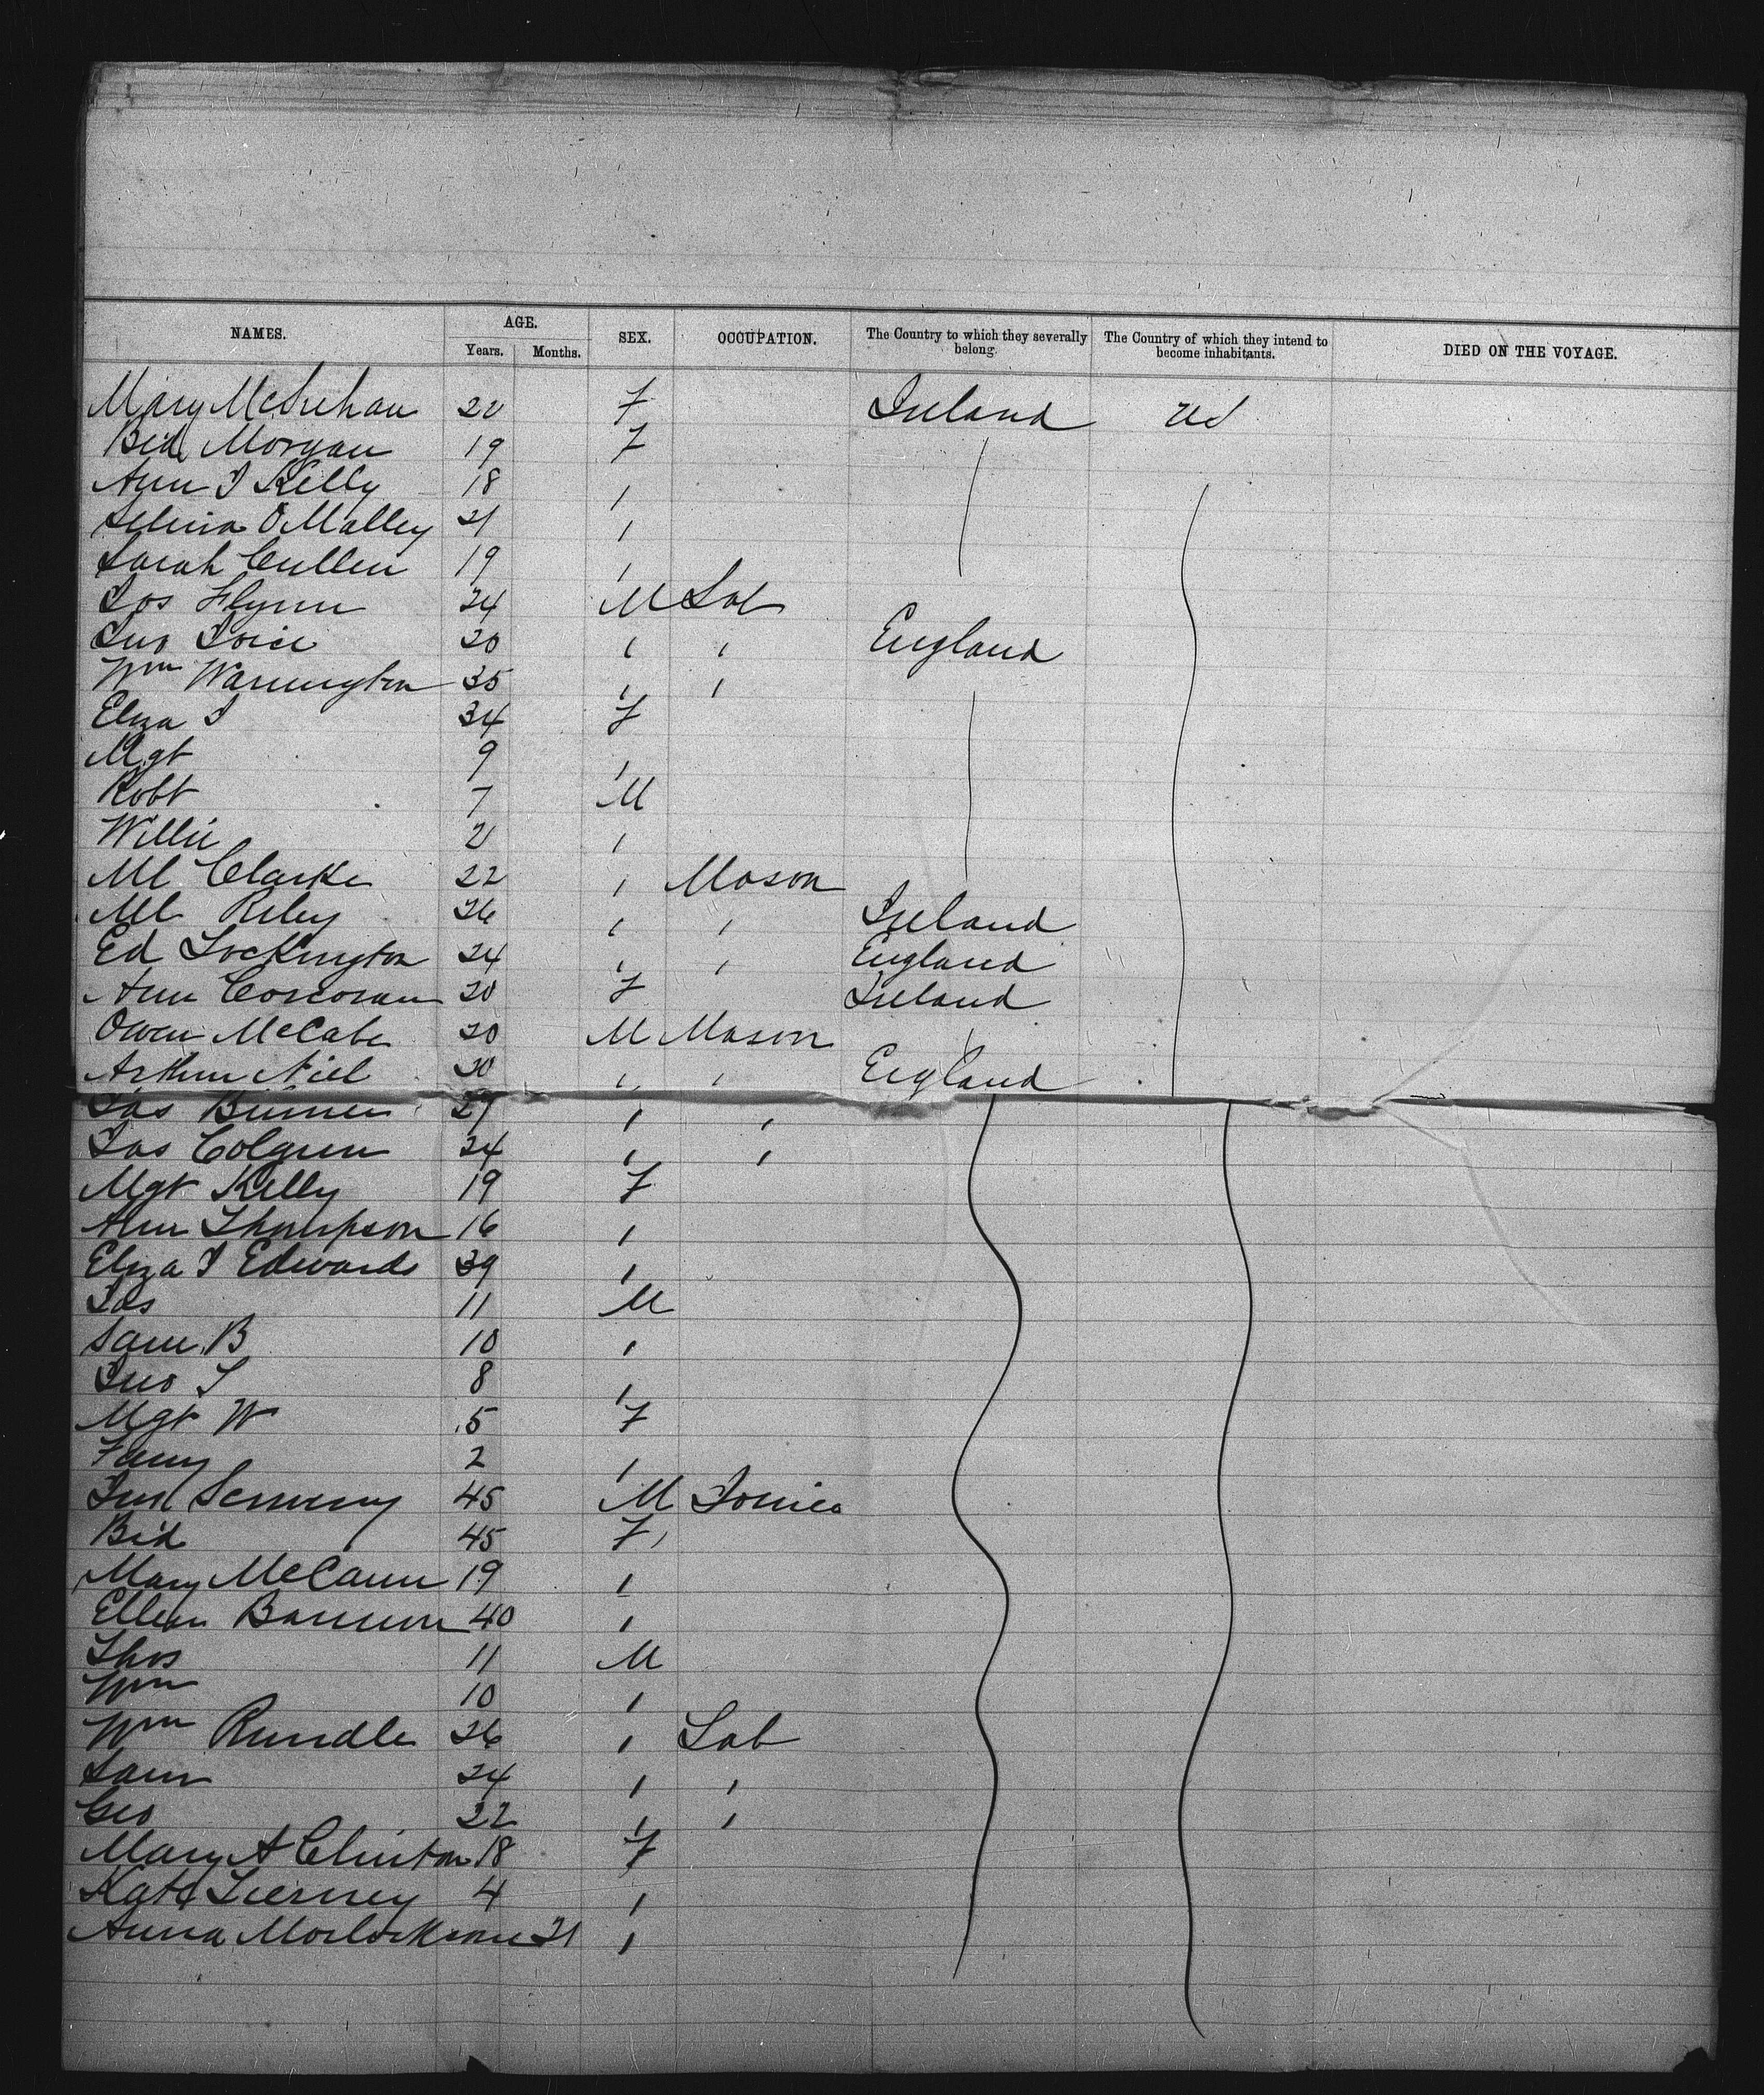 NAMES. AGE. SEX. OCCUPATION. The Country to which they severally belong. The Country of which they intend to become inhabitants. DIED ON THE VOYAGE.
Years. Months.
Mary 20 F Ireland US
Bid Morgan 19 F
Ann J Kelly 18 "
Selina O Malley 21 "
Sarah Cullen 19 "
Jos Flynn 24 M Lab
Jno Joice 20 " " England
Wm Warrington 35 " "
Eliza J 34 F
Mgt 9 "
Robt 7 M
Willie 2 "
Ml Clarke 22 " Mason
Ml Riley 26 " " Ireland
Ed Lockington 24 " " England
Ann Corcoran 20 F Ireland
Owen McCabe 20 M Mason "
Arthur Niel 20 " " England
Jas 27 " "
Jas Colgren 24 " "
Mgt Kelly 19 F
Ann Thompson 16 "
Eliza J Edwards 39 "
Jas 11 M
Sam B 10 "
Jno T 8 "
Mgt W 5 F
Fany 2 "
45 M
Bid 45 F "
Mary McCann 19 "
Ellen Bannon 40 "
Thos 11 M
Wm 10 "
Wm Rundle 26 " Lab
Sam 24 " "
Geo 22 " "
Mary A Clinton 18 F
Kate Tierney 4 "
Anna 21 "